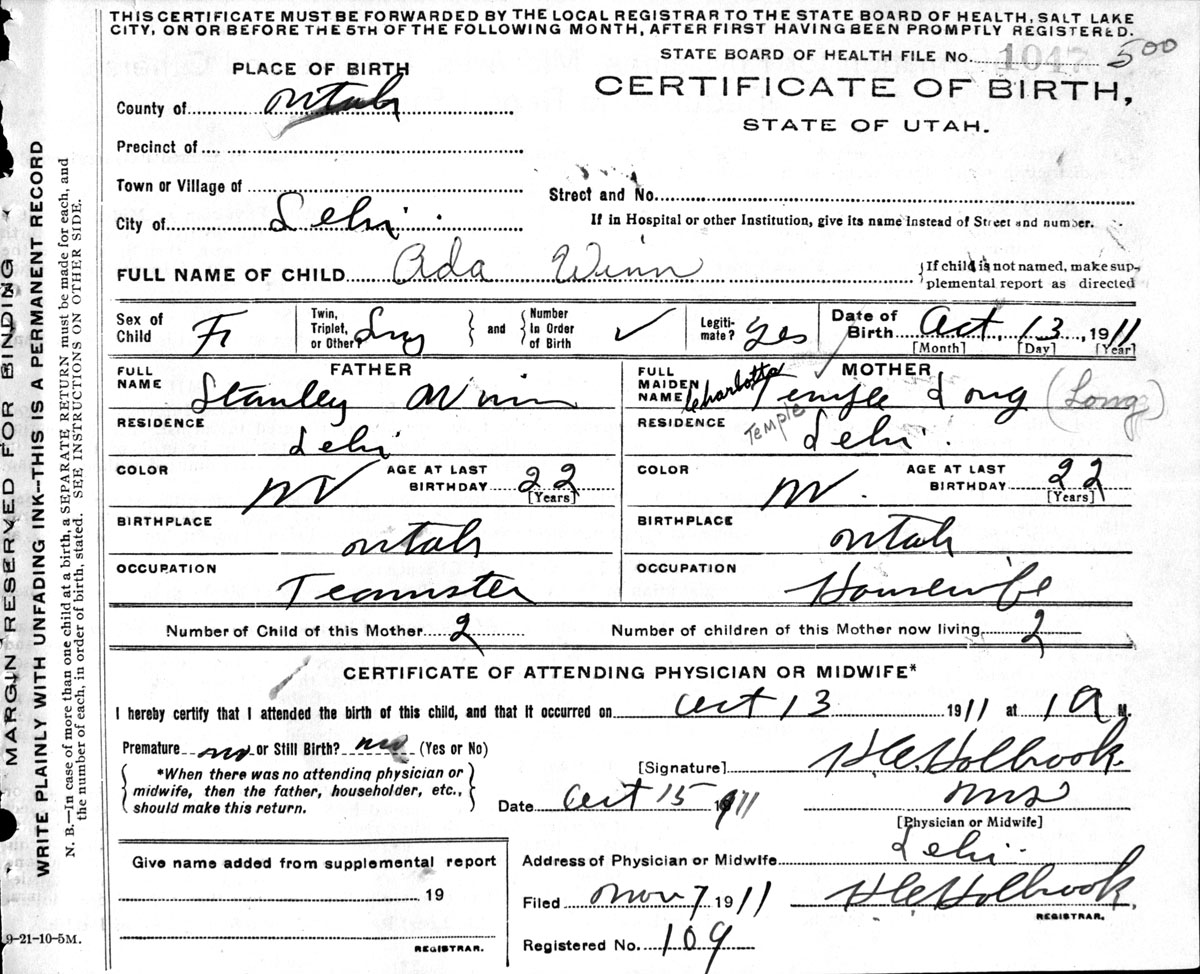 THIS CERTIFICATE MUST BE FORWARDED BY THE LOCAL REGISTRAR TO THE STATE BOARD OF HEALTH, SALT LAKE
CITY, ON OR BEFORE THE 5TH OF THE FOLLOWING MONTH, AFTER FIRST HAVING BEEN PROMPTLY REGISTERED.
STATE BOARD OF HEALTH FILE No. 1047 500
PLACE OF BIRTH
CERTIFICATE OF BIRTH,
STATE OF UTAH.
County of Utah
Precinct of
Town or Village of
Street and No.
City of Lehi
If in Hospital or other Institution, give its name instead of Street and number.
FULL NAME OF CHILD Ada Winn
{If child is not named, make sup-
plemental report as directed
Sex of Child F
Twin, Triplet, or Other? Sing } and { Number In Order of Birth ✓
Legiti-mate? yes
Date of Birth Oct, 13, 1911
[Month] [Day] [Year]
FATHER
FULL NAME Stanley Winn
RESIDENCE Lehi
COLOR W AGE AT LAST BIRTHDAY 22
[Years]
BIRTHPLACE Utah
OCCUPATION Teamster
MOTHER
FULL MAIDEN NAME Charlotte Temple Long (Long)
Temple
RESIDENCE Lehi.
COLOR W. AGE AT LAST BIRTHDAY 22
[Years]
BIRTHPLACE Utah
OCCUPATION Housewife
Number of Child of this Mother 2 Number of children of this Mother now living 2
CERTIFICATE OF ATTENDING PHYSICIAN OR MIDWIFE*
I hereby certify that I attended the birth of this child, and that it occurred on Oct 13 1911 at 1 A M.
Premature no or Still Birth? no (Yes or No)
{ *When there was no attending physician or
midwife, then the father, householder, etc.,
should make this return. }
[Signature] H.C. Holbrook
Date Oct 15 1911
[Physician or Midwife]
Address of Physician or Midwife Lehi
Filed Nov 7 1911 H C Holbrook
REGISTRAR.
Registered No. 109
Give name added from supplemental report
19
REGISTRAR.
9-21-10-5M.
MARGIN RESERVED FOR BINDING
WRITE PLAINLY WITH UNFADING INK--THIS IS A PERMANENT RECORD
N. B.—In case of more than one child at a birth, a SEPARATE RETURN must be made for each, and
the number of each, in order of birth, stated. SEE INSTRUCTIONS ON OTHER SIDE.